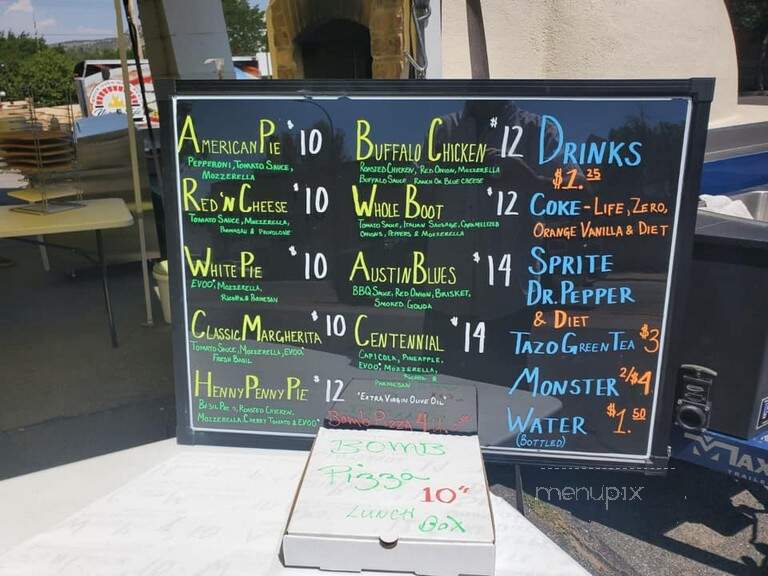 American Pie $10
Pepperoni, Tomato Sauce,
Mozzerella
Red 'N Cheese $10
Tomato Sauce, Mozzerella,
Parmasan & Provolone
White Pie $10
EVOO", Mozzerella,
Ricotta & Parmesan
Classic Margherita $10
Tomato Sauce, Mozzerella, EVOO"
Fresh Basil
Henny Penny Pie $12
Basil Pesto, Roasted Chicken,
Mozzerella, Cherry Tomato & EVOO"
Buffalo Chicken $12
Roasted Chicken, Red Onion, Mozzerella
Buffalo Sauce Ranch or Blue Cheese
Whole Boot $12
Tomato Sauce, Italian Sausage, Caramelized
Onions, Peppers & Mozzerella
Austin Blues $14
BBQ Sauce, Red Onion, Brisket,
Smoked Gouda
Centennial $14
Capicola, Pineapple,
EVOO", Mozzerella,
Ricotta &
Parmesan
"Extra Virgin Olive Oil"
Bomb Pizza 4
Drinks
$1.25
Coke - Life, Zero,
Orange Vanilla & Diet
Sprite
Dr. Pepper
& Diet
Tazo Green Tea $3
Monster 2/$4
Water $1.50
(Bottled)
Bomb
Pizza
10"
Lunch
Box
menupix
MAX
TRAILERS